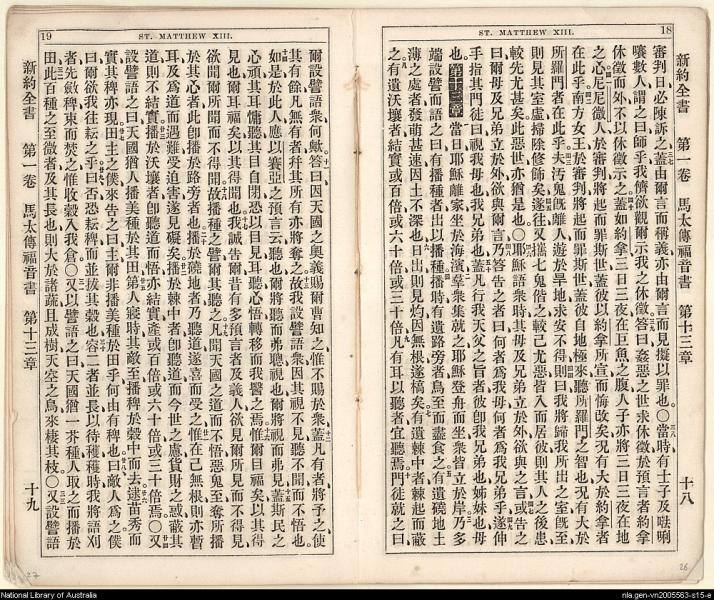 18
ST. MATTHEW XIII.
新約全書 第一卷 馬太傳福音書 第十三章 十八
審判日必陳訴之蓋由爾言而稱義亦由爾言而見擬以罪也〇當時有士子及㗭唎
㘔數人謂之曰師乎我儕欲觀爾示我之休徵答曰姦惡之世求休徵於預言者約拿
休徵而外不以休徵示之蓋如約拿三日三夜在巨魚之腹人子亦將三日三夜在地
之心尼尼微人於審判將起而罪斯世蓋彼以約拿所宣而悔改矣況有大於約拿者
在此乎南方女王於審判將起而罪斯世蓋彼自地極來聽所羅門之智也況有大於
所羅門者在此乎夫汚鬼旣離人遊於旱地求安不得則曰我將歸我所出之室旣至
則見其室虛掃除修飾矣遂往又攜七鬼偕之較己尤惡皆入而居彼則其人之後患
較先尤甚矣此惡世亦猶是也〇耶穌語衆時其母及兄弟立於外欲與之言或告之
曰爾母及兄弟立於外欲與爾言乃答告之者曰何者爲我母何者爲我兄弟乎遂伸
手指其門徒曰視我母也我兄弟也蓋凡行我天父之旨者彼卽我兄弟也姊妹也母
也第十三章當日耶穌離家坐於海濱羣衆集就之耶穌登舟而坐衆皆立於岸乃多
端設譬而語之曰有播種者出以播種播時有遺路旁者鳥至而盡食之有遺磽地土
薄之處者發萌甚速因土不深也日出則見灼因無根遂槁矣有遺棘中者棘起而蔽
之有遺沃壤者結實或百倍或六十倍或三十倍凡有耳以聽者宜聽焉門徒就之曰
19
ST. MATTHEW XIII.
爾設譬語衆何歟答曰因天國之奧義賜爾曹知之惟不賜於衆蓋凡有者將予之使
其有餘凡無有者幷其所有亦將奪之故我設譬語衆因其視不見聽不聞而不悟也
如是於此人應以賽亞之預言云聽也爾將聽而弗聰視也爾將視而弗見蓋斯民之
心頑其耳慵聽其目自閉恐以目見耳聽心悟轉移而我醫之焉惟爾目福矣以其得
見也爾耳福矣以其得聞也我誠告爾昔有多預言者及義人欲見爾所見而不得見
欲聞爾所聞而不得聞故播種之譬爾其聽之凡聞天國之道而不悟惡鬼至奪所播
於其心者此卽播於路旁者也播於磽地者乃聽道遂喜而受之惟在己無根則亦暫
耳及爲道而遇難受迫害遂見礙矣播於棘中者卽聽道而今世之慮貨財之惑蔽其
道則不結實播於沃壤者卽聽道而悟亦結實產或百倍或六十倍或三十倍焉〇又
設譬語之曰天國猶人播美種於其田第人寢時其敵至播稗於穀中而去迷苗秀而
實其稗亦現田主之僕來告之曰主爾非播美種於田乎何由有稗也曰敵人爲之僕
曰爾欲我往耘之乎曰否恐耘稗而並拔其穀也容二者並長以待穫穫時我將語刈
者先斂稗束而焚之惟收穀入我倉〇又以譬語之曰天國猶一芥種人取之而播於
田此百種之至微者及其長也則大於諸蔬且成樹天空之鳥來棲其枝〇又設譬語
新約全書 第一卷 馬太傳福音書 第十三章 十九
27
26
National Library of Australia
nla.gen-vn2005563-s15-e